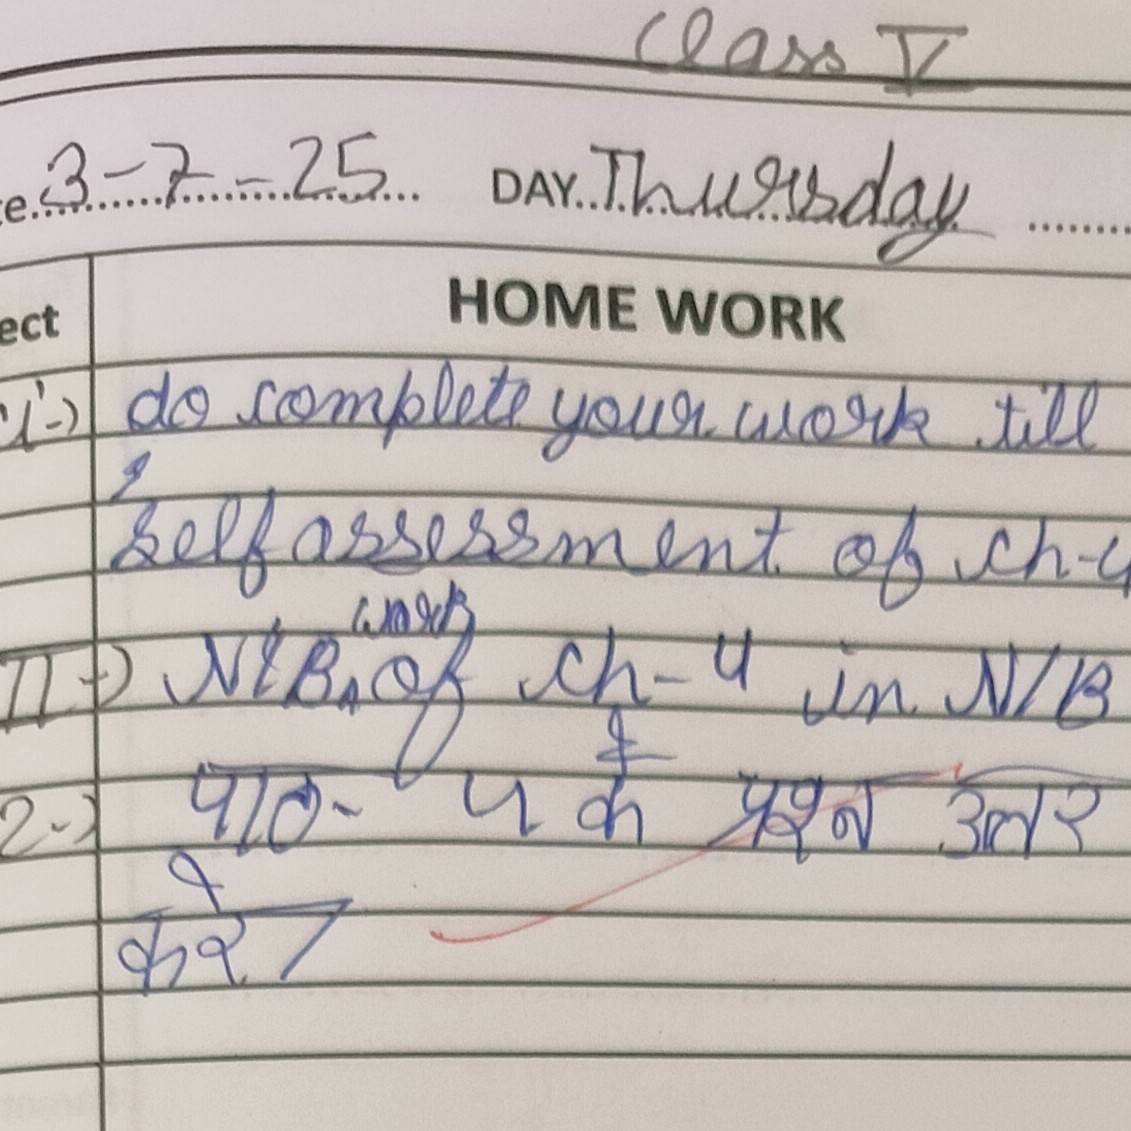 Class V
e. 3-7-25 DAY. Thursday
ect HOME WORK
1-) do complete your work till
self assessment of ch-4
II-) N/B work of ch-4 in N/B
2-) पाठ- 4 के प्रश्न उत्तर
करे ।